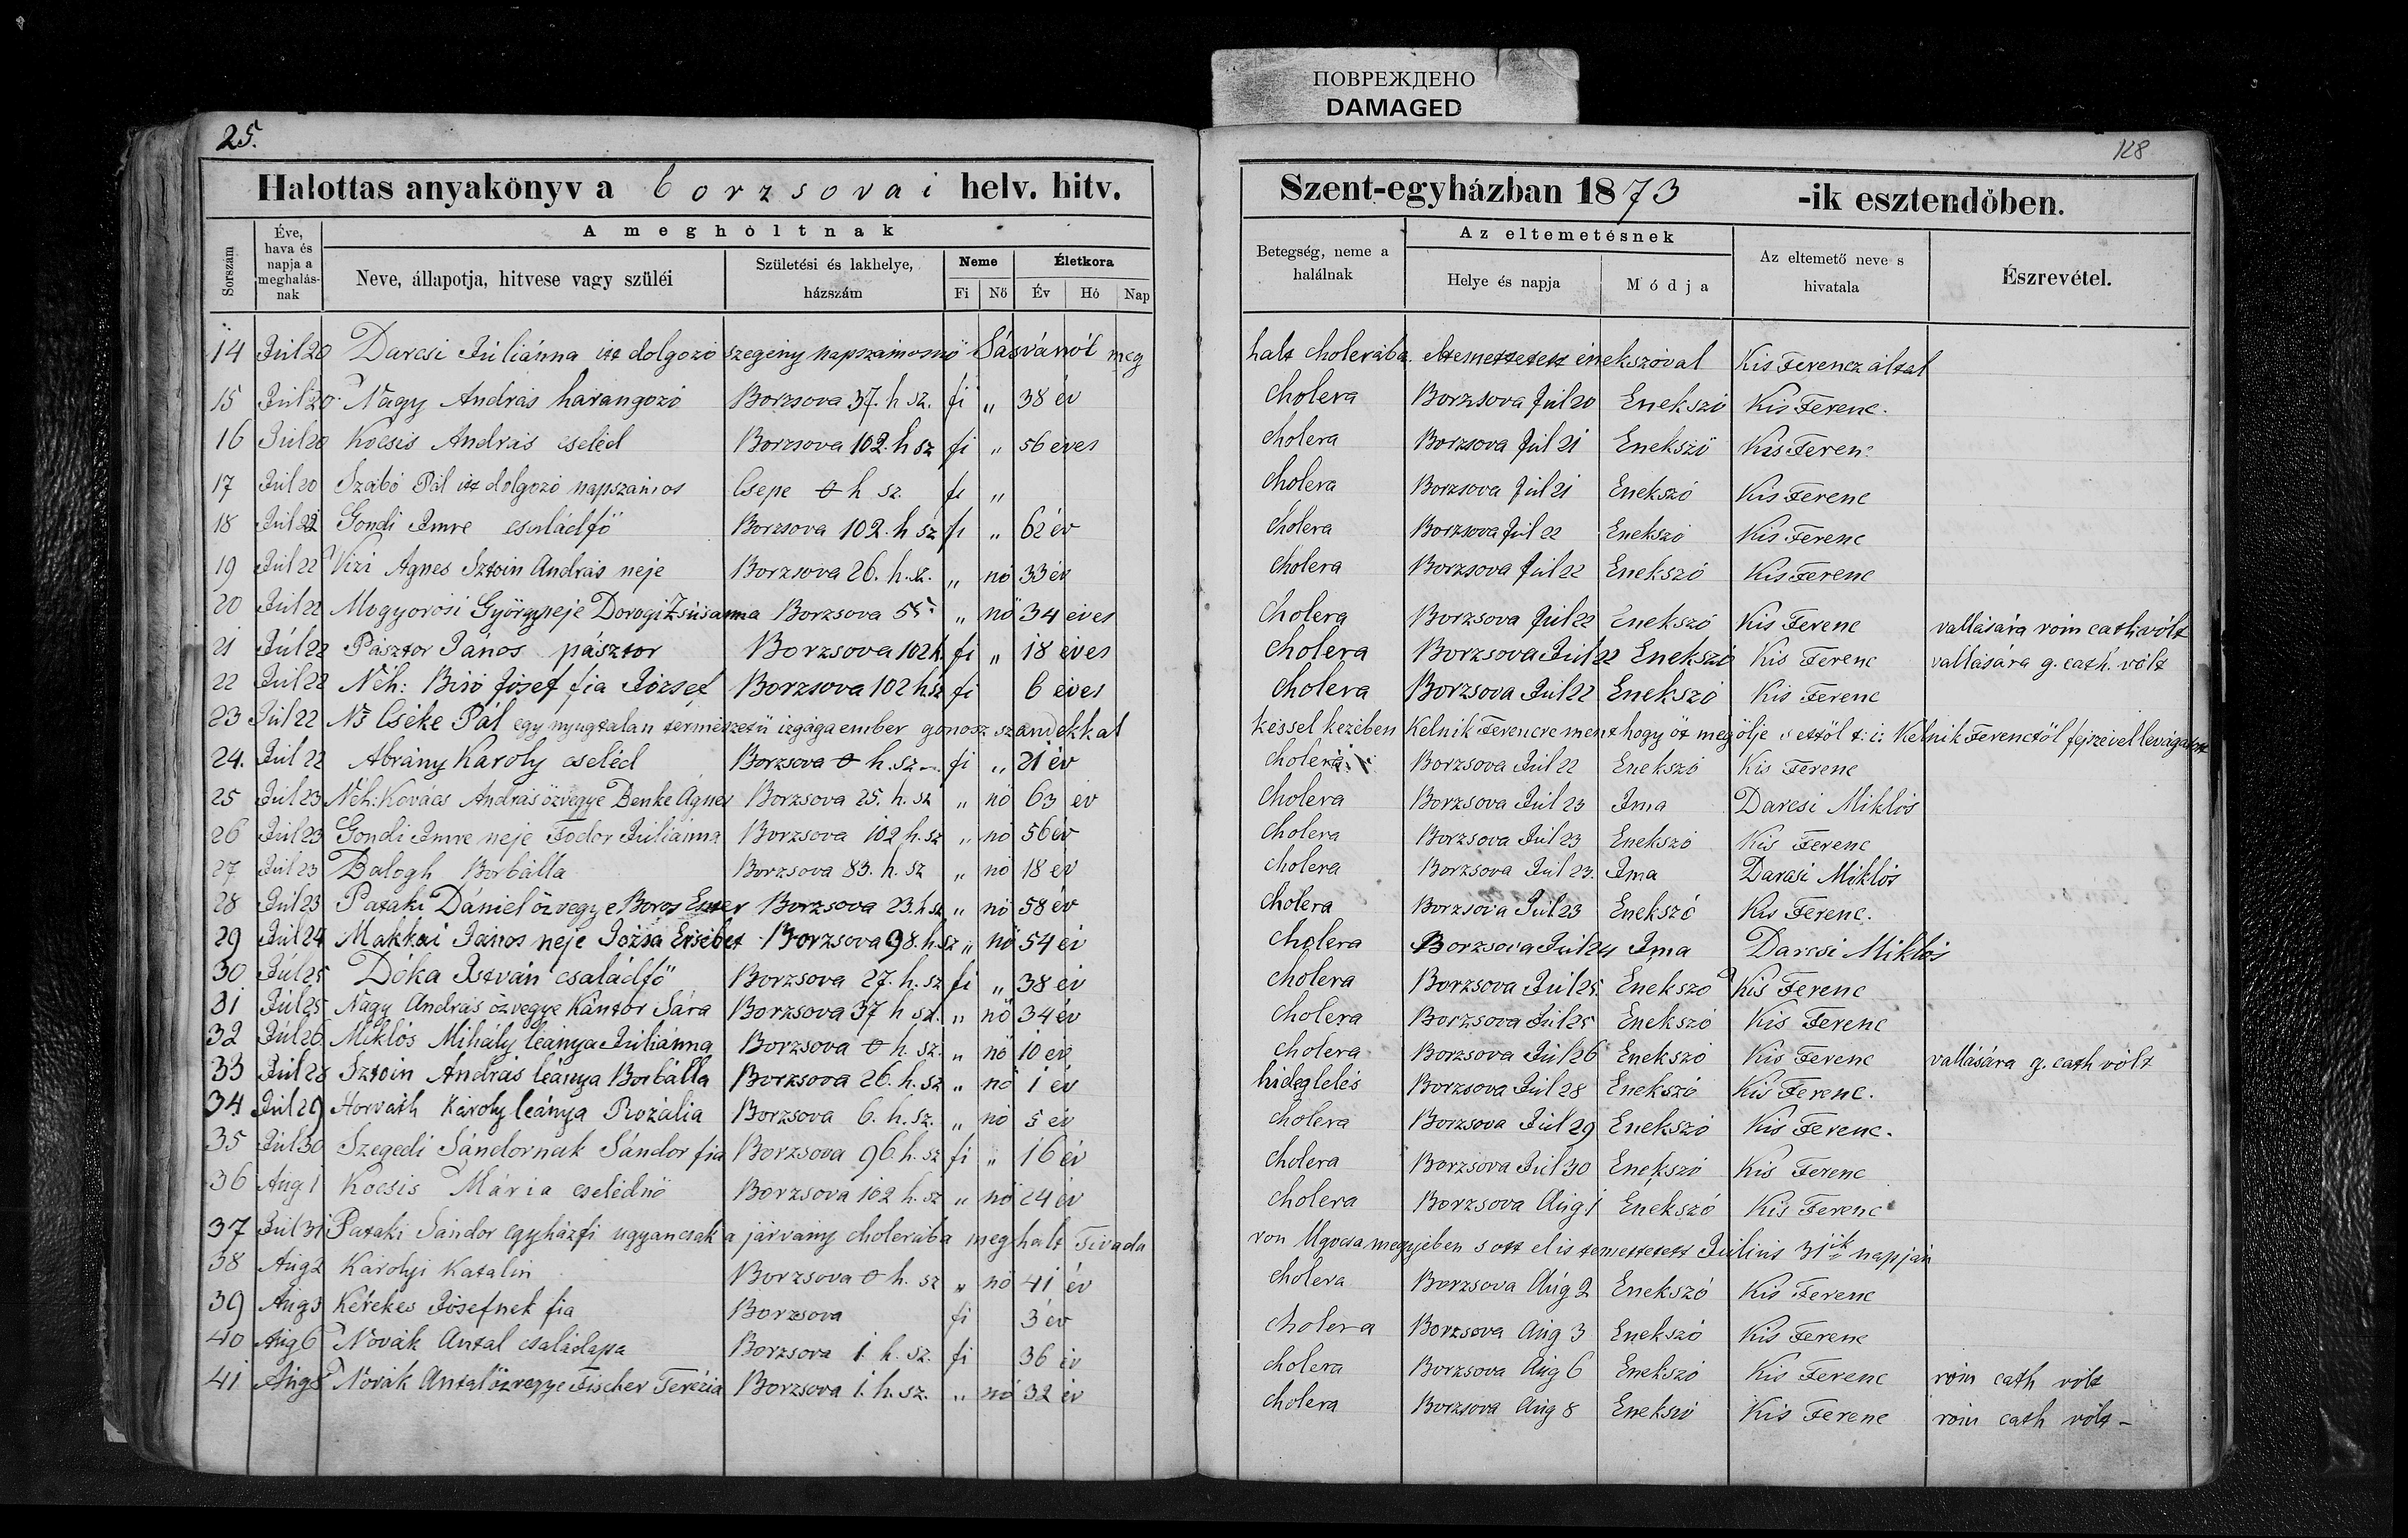 ПОВРЕЖДЕНО
DAMAGED
25.
128
Halottas anyakönyv a borzsovai helv. hitv. Szent-egyházban 1873 -ik esztendőben.
Sorszám
Éve, hava és napja a meghalásnak
A megholtnak
Neve, állapotja, hitvese vagy szüléi
Születési és lakhelye, házszám
Neme
Fi Nő
Életkora
Év Hó Nap
Betegség, neme a halálnak
Az eltemetésnek
Helye és napja
Módja
Az eltemető neve s hivatala
Észrevétel.
14 Júl 20 Darcsi Júliánna itt dolgozó szegény napszámosnő Sásváról meg halt cholerába eltemettetett énekszóval Kis Ferencz által
15 Júl 20 Nagy András harangozó Borzsova 37. h. sz. fi „ 38 év cholera Borzsova Júl 20 Enekszó Kis Ferenc.
16 Júl 20 Kocsis András cseléd Borzsova 102. h sz fi „ 56 éves cholera Borzsova Júl 21 Enekszó Kis Feren:
17 Júl 20 Szabó Pál itt dolgozó napszámos Csepe 0 h sz. fi „ cholera Borzsova Júl 21 Enekszó Kis Ferenc
18 Júl 22 Gondi Imre családfő Borzsova 102. h sz fi „ 62 év cholera Borzsova Júl 22 Enekszó Kis Ferenc
19 Júl 22 Vizi Agnes Sztoin András neje Borzsova 26. h. sz. „ nő 33 év cholera Borzsova Júl 22 Enekszó Kis Ferenc
20 Júl 22 Mogyorósi György neje Dorogi Zsúsanna Borzsova 55. „ nő 34 éves Cholera Borzsova Júl 22 Enekszó Kis Ferenc vallására róm cath: vólt
21 Júl 22 Pásztor János pásztor Borzsova 102 h. fi „ 18 éves cholera Borzsova Júl 22 Enekszó Kis Ferenc vallására g. cath. vólt
22 Júl 22 Néh: Biró Jósef fia József Borzsova 102 h sz fi 6 éves cholera Borzsova Júl 22 Enekszó Kis Ferenc
23 Júl 22 Cséke Pál egy nyugtalan természetü izgága ember gonosz szándékkal késsel kezében Kelnik Ferencre ment hogy öt megölje s ettöl t: i: Kelnik Ferenctöl fejszével levágatott
24. Júl 22 Abrány Károly cseléd Borzsova 0 h. sz – fi „ 21 év cholera Borzsova Júl 22 Enekszó Kis Ferenc
25 Júl 23 Néh: Kovács András özvegye Benke Ágnes Borzsova 25. h. sz „ nő 63 év Cholera Borzsova Júl 23 Ima Darcsi Miklós
26 Júl 23 Gondi Imre neje Fodor Júliánna Borzsova 102 h. sz „ nő 56 év cholera Borzsova Júl 23 Enekszó Kis Ferenc
27 Júl 23 Balogh Borbálla Borzsova 83. h. sz „ nő 18 év cholera Borzsova Júl 23. Ima Darcsi Miklós
28 Júl 23 Pataki Dániel özvegye Boros Eszter Borzsova 23. h sz „ nő 58 év cholera Borzsova Júl 23 Enekszó Kis Ferenc.
29 Júl 24 Makkai János neje Józsa Ersébet Borzsova 98. h. sz „ nő 54 év cholera Borzsova Júl 24 Ima Darcsi Miklós
30 Júl 25 Dóka István családfő Borzsova 27. h. sz fi „ 38 év cholera Borzsova Júl 25. Enekszó Kis Ferenc
31 Júl 25 Nagy András özvegye Kántor Sára Borzsova 37 h sz. „ nő 34 év cholera Borzsova Júl 25 Enekszó Kis Ferenc
32 Júl 26 Miklós Mihály leánya Júliánna Borzsova 0 h. sz. „ nő 10 év cholera Borzsova Júl 26 Enekszó Kis Ferenc vallására g. cath vólt
33 Júl 28 Sztoin András leánya Borbálla Borzsova 26. h. sz „ nő 1 év hideglelés Borzsova Júl 28 Enekszó Kis Ferenc.
34 Júl 29 Horváth Károly leánya Rozália Borzsova 6. h. sz. „ nő 5 év cholera Borzsova Júl 29 Enekszó Kis Ferenc.
35 Júl 30 Szegedi Sándornak Sándor fia Borzsova 96. h. sz fi „ 16 év cholera Borzsova Júl 30 Enekszó Kis Ferenc
36 Aúg. 1 Kocsis Mária cselédnő Borzsova 102 h. sz „ nő 24 év cholera Borzsova Aúg 1 Enekszó Kis Ferenc
37 Júl 31 Pataki Sándor egyházfi ugyancsak a járvány cholerába meghalt Tivadaron Ugocsa megyében s ott el is temettetett Július 31ik napján
38 Aúg 2 Károlyi Katalin Borzsova 0 h. sz „ nő 41 év cholera Borzsova Aúg 2 Enekszó Kis Ferenc
39 Aúg 3 Kérekes Jósefnek fia Borzsova fi 3 év cholera Borzsova Aúg 3 Enekszó Kis Ferenc
40 Aúg 6 Novák Antal családapa Borzsova 1. h. sz. fi 36 év cholera Borzsova Aúg 6 Enekszó Kis Ferenc róm cath vólt
41 Aúg 8 Novák Antal özvegye Fischer Terézia Borzsova 1. h. sz. „ nő 32 év cholera Borzsova Aúg 8 Enekszó Kis Ferenc róm cath vólt –